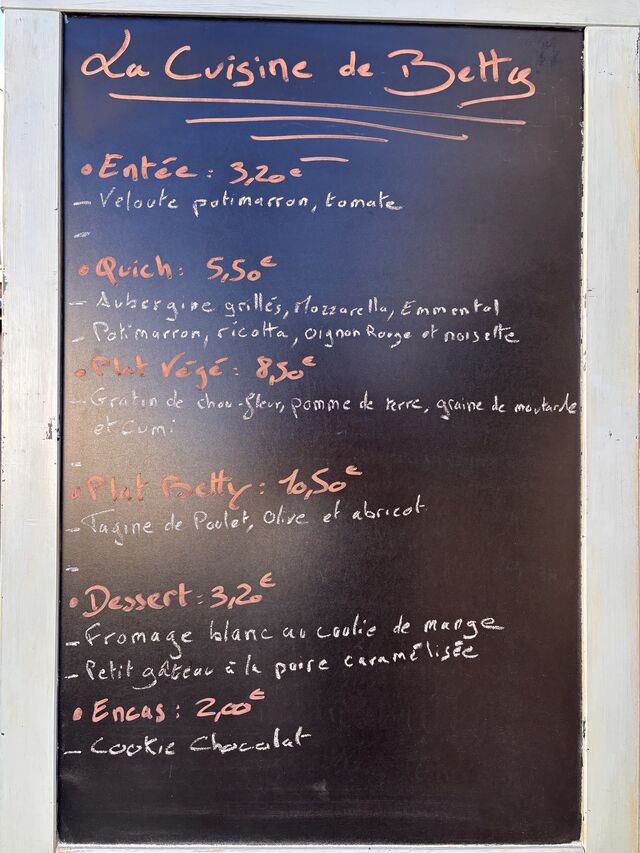 La Cuisine de Betty
• Entée : 3,20€
- Velouté potimarron, tomate
-
• Quich : 5,50€
- Aubergine grillés, Mozzarella, Emmental
- Potimarron, ricotta, oignon Rouge et noisette
• Plat Végé : 8,50€
- Gratin de chou-fleur, pomme de terre, graine de moutarde
et Cumi
-
• Plat Betty : 10,50€
- Tagine de Poulet, Olive et abricot
-
• Dessert : 3,20€
- Fromage blanc au coulie de mange
- Petit gâteau à la poire caramélisée
• Encas : 2,00€
- Cookie Chocolat